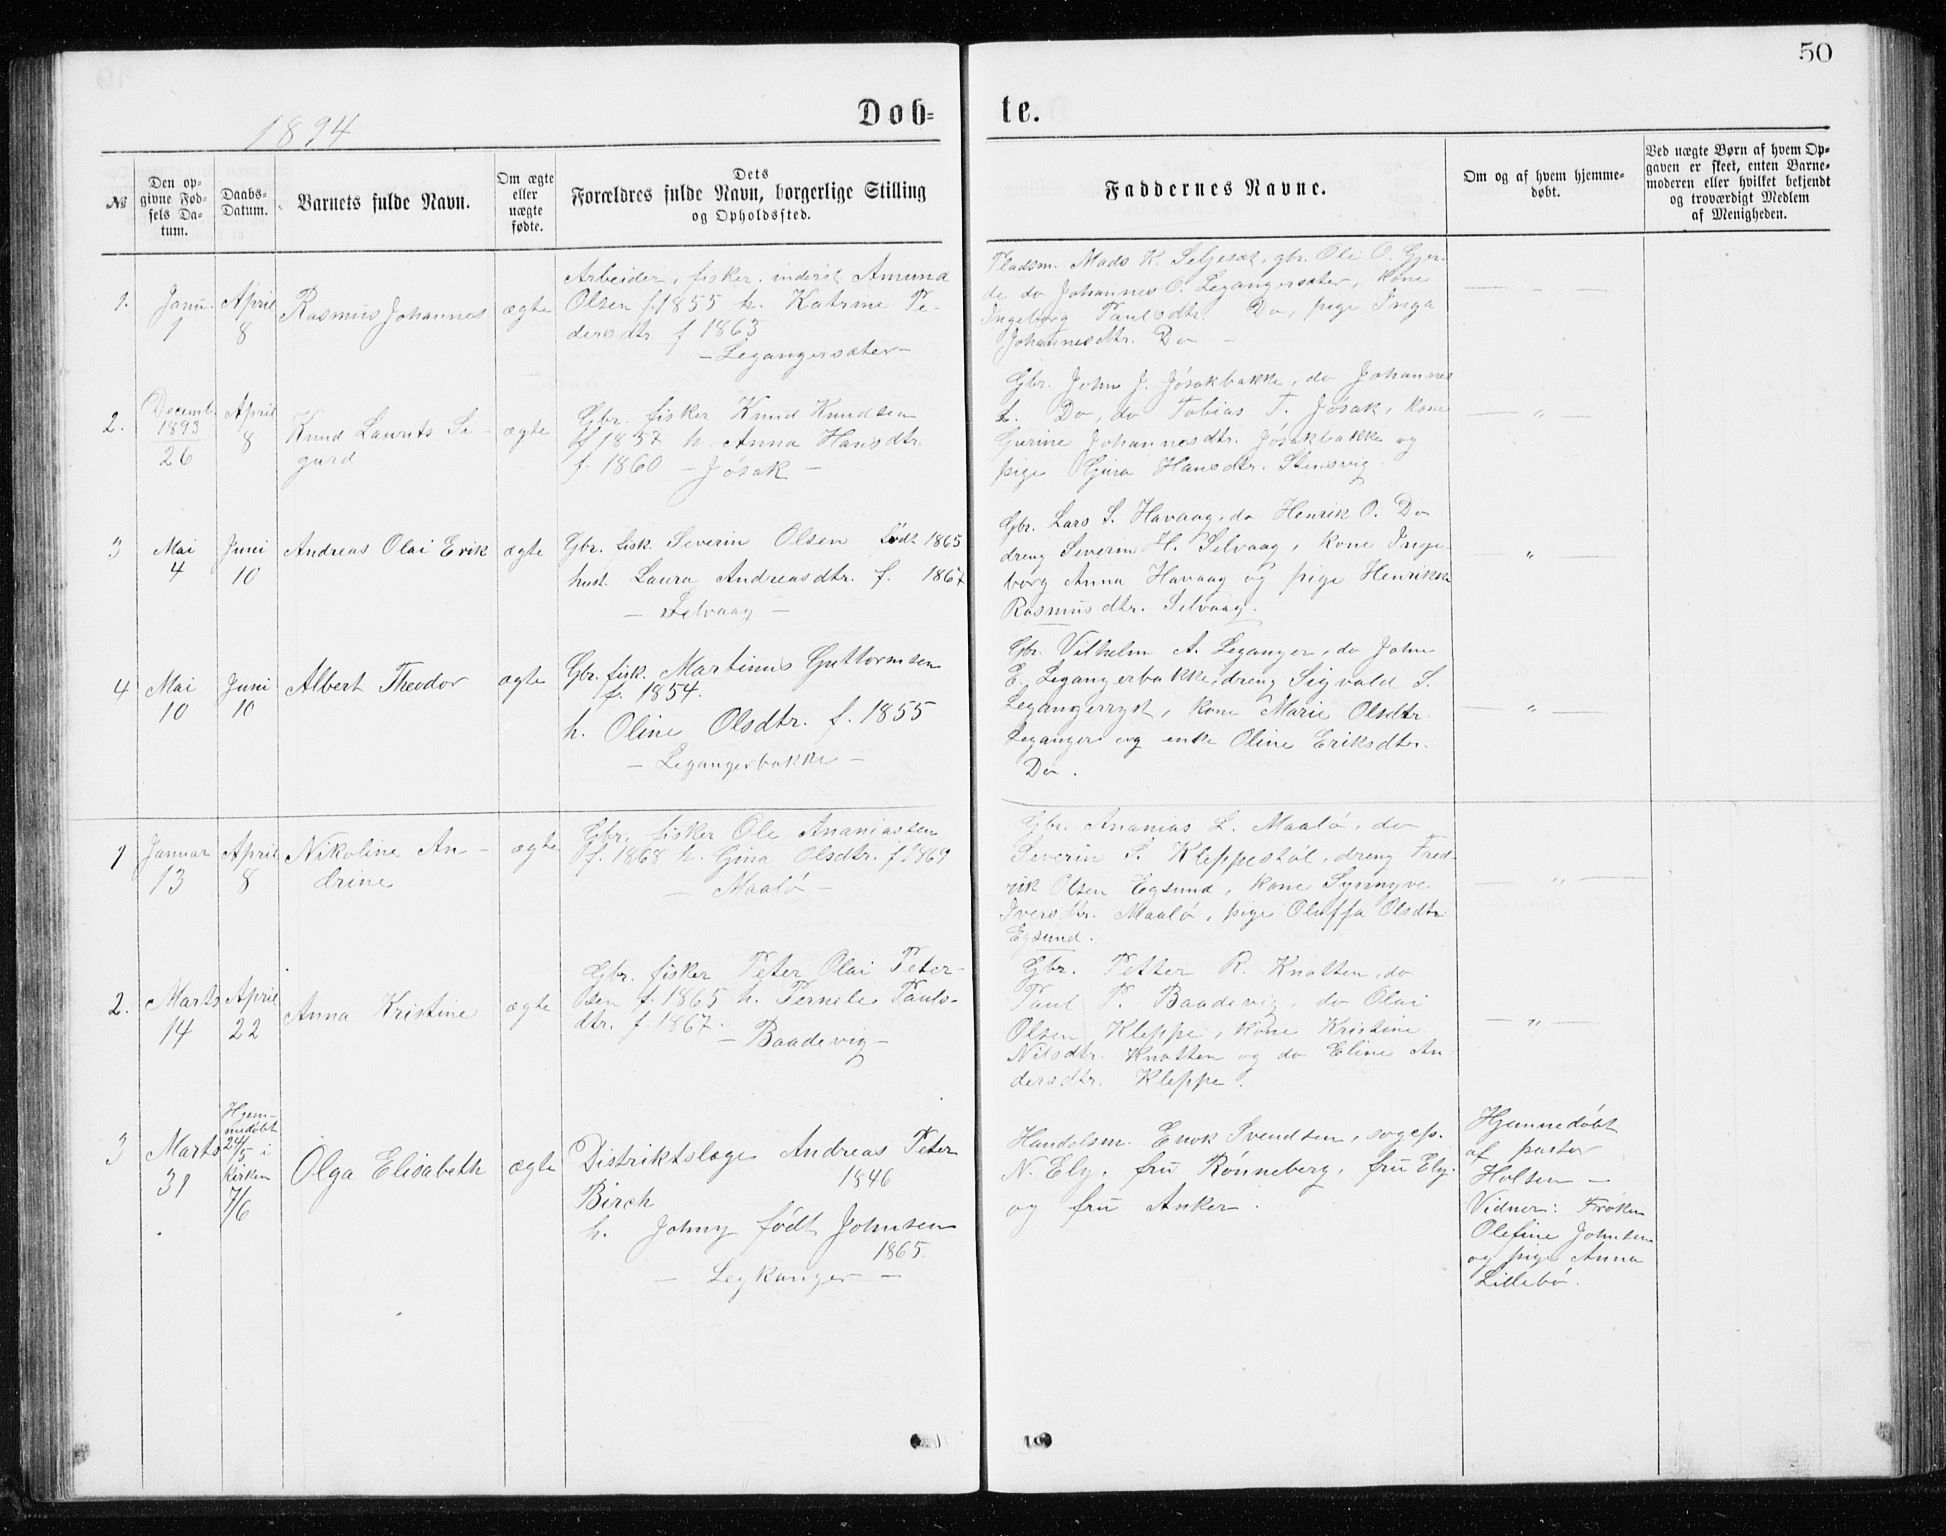 50
1894
Døb-
te.
№
Den op-
givne Fød-
sels Da-
tum.
Daabs-
Datum.
Barnets fulde Navn.
Om ægte
eller
nægte
fødte.
Dets
Forældres fulde Navn, borgerlige Stilling
og Opholdssted.
Faddernes Navne.
Om og af hvem hjemme-
døbt.
Ved nægte Børn af hvem Op-
gaven er skeet, enten Barne-
moderen eller hvilket bekjendt
og troværdigt Medlem
af Menigheden.
1.
Janu.
1
April
8
Rasmus Johannes
ægte
Arbeider, fisker, inderst Amund
Olsen f. 1855 h. Katrine Pe-
dersdtr f 1863
- Legangersæter -
Pladsm. Mads K. Seljeset, gbr. Ole O. Gjer-
de do Johannes O. Legangersæter, kone
Ingeborg Paulsdtr. Do, pige Inga
Johannesdtr. Do -
2.
Decemb.
1893
26
April
8
Knud Laurits Si-
gurd
ægte
Gbr. fisker Knud Knudsen
f. 1857 h. Anna Hansdtr.
f. 1860 - Jøsok -
Gbr. John J. Jøsokbakke, do Johannes
L. Do, do Tobias T. Jøsak, kone
Gurine Johannesdtr. Jøsakbakke og
pige Gina Hansdtr. Stensvig.
- " -
3
Mai
4
Juni
10
Andreas Olai Erik
ægte
Gbr. fisk. Severin Olsen født 1865
hust. Laura Andreasdtr. f. 1867
- Selvaag -
Gbr. Lars S. Havaag, do Henrik O. Do
dreng Severin H. Selvaag, kone Inge
borg Anna Havaag og pige Henrikke
Rasmusdtr. Selvaag.
- " -
4
Mai
10
Juni
10
Albert Theodor
ægte
Gbr. fisk. Martinus Guttormsen
f. 1854.
h. Oline Olsdtr. f. 1855
- Legangerbakke -
Gbr. Vilhelm A. Leganger, do John
E. Legangerbakke, dreng Sigvald S.
Legangerryst, kone Marie Olsdtr.
Leganger og enke Oline Eriksdtr.
Do.
- " -
1
Januar
13
April
8
Nikoline An-
drine
ægte
Gbr. fisker Ole Ananiassen
f. 1868 h. Gina Olsdtr. f. 1869
- Maalø -
Gbr. Ananias L. Maalø, do
Severin S. Kleppestøl, dreng Fred-
rik Olsen Egsund, kone Synnøve
Iversdtr. Maalø, pige Oluffa Olsdtr.
Egsund.
- " -
2.
Marts
14
April
22
Anna Kristine
ægte
Gbr. fisker Peter Olai Peter-
sen f. 1865 h. Pernele Pauls-
dtr. f. 1867.
- Baadevig -
Gbr. Petter R. Knotten, do
Paul P. Baadevig, do Olai
Olsen Kleppe, kone Kristine
Nilsdtr. Knotten og do Eline An
dersdtr. Kleppe.
- " -
3
Marts
31
Hjem-
medøbt
24/5 i
Kirken
7/6
Olga Elisabeth
ægte
Distriktslæge Andreas Peter
1846
Birch
h. Johny født Johnsen
1865.
- Legkanger -
Handelsm. Enok Svendsen, sogep.
N. Ely, fru Rønneberg, fru Ely
og fru Anker.
Hjemmedøbt
af pastor
Holsen -
Vidner: Frøken
Olefine Johnsen
og pige Anna
Lillebø.